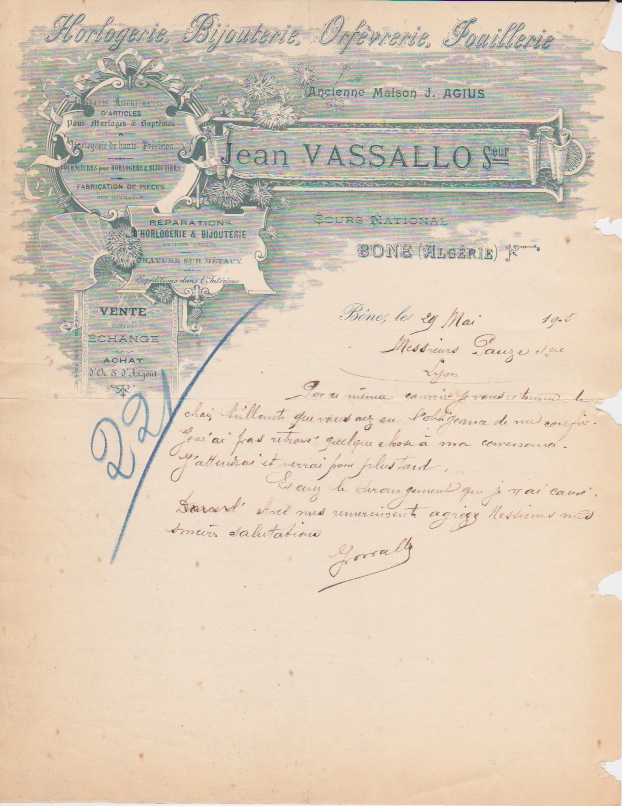 Horlogerie, Bijouterie, Orfèvrerie, Joaillerie
Ancienne Maison J. AGIUS
Jean VASSALLO Seur
Cours National
BONE (Algérie)
Grands Assortiments
D'ARTICLES
Pour Mariages & Baptêmes
Horlogerie de haute Précision
FOURNITURES pour HORLOGERS & BIJOUTIERS
FABRICATION DE PIÈCES
SUR COMMANDE
RÉPARATIONS
D'HORLOGERIE & BIJOUTERIE
EN TOUS GENRES
GRAVURE SUR MÉTAUX
Expéditions dans l'Intérieur
VENTE
ÉCHANGE
ACHAT
D'Or & d'Argent
22
Bône, le 29 Mai 1905
Messieurs
Lyon
Par ce même courrier je vous retourne les
brillants que vous avez eu l'obligeance de me confier.
Je n'ai pas retrouvé quelque chose à ma convenance.
J'attendrai et verrai pour plus tard.
Excusez le dérangement que je vous ai causé.
Avec mes remerciements agréez Messieurs mes
salutations